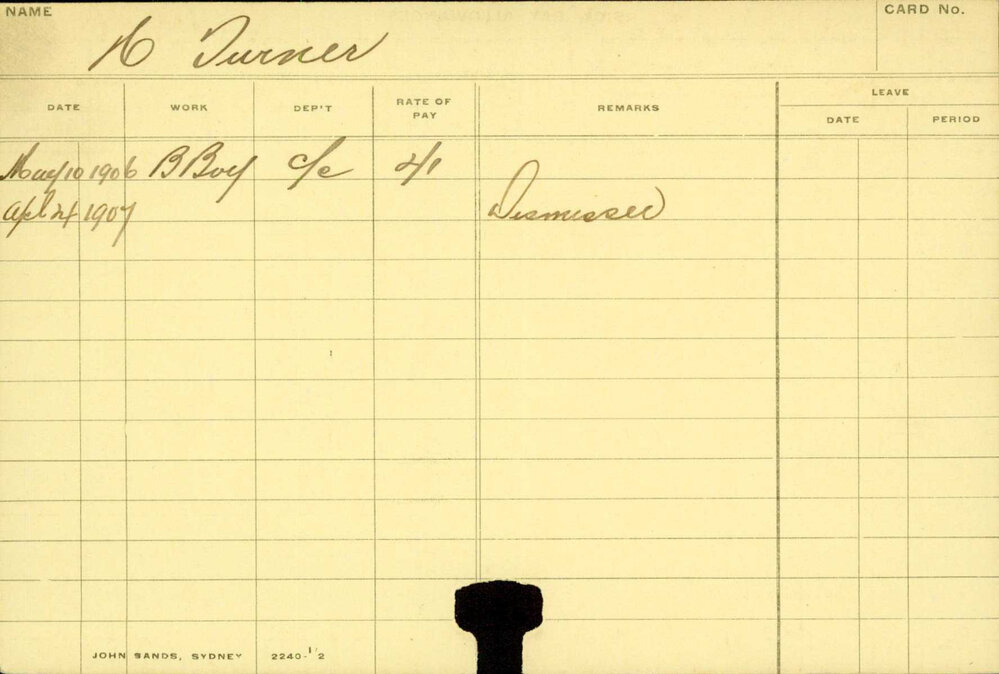 NAME
H Turner
CARD No.
DATE WORK DEP'T RATE OF PAY REMARKS LEAVE
DATE PERIOD
May 10 1906 B Boy c/c 2/1
Apl 24 1907 Dismissed
JOHN SANDS, SYDNEY 2240-1/2